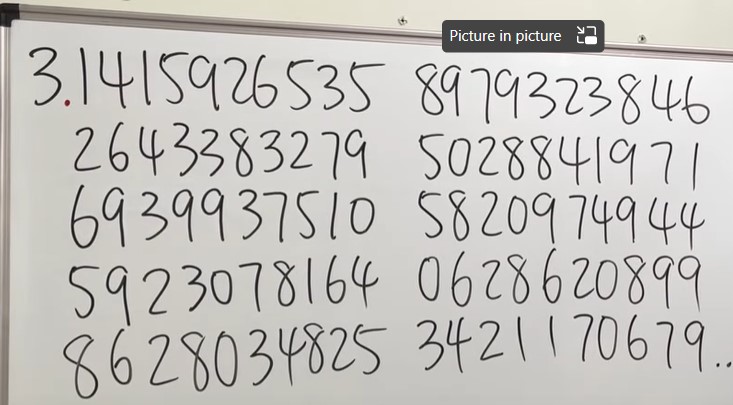 Picture in picture
3.1415926535 8979323846
2643383279 5028841971
6939937510 5820974944
5923078164 0628620899
8628034825 3421170679..